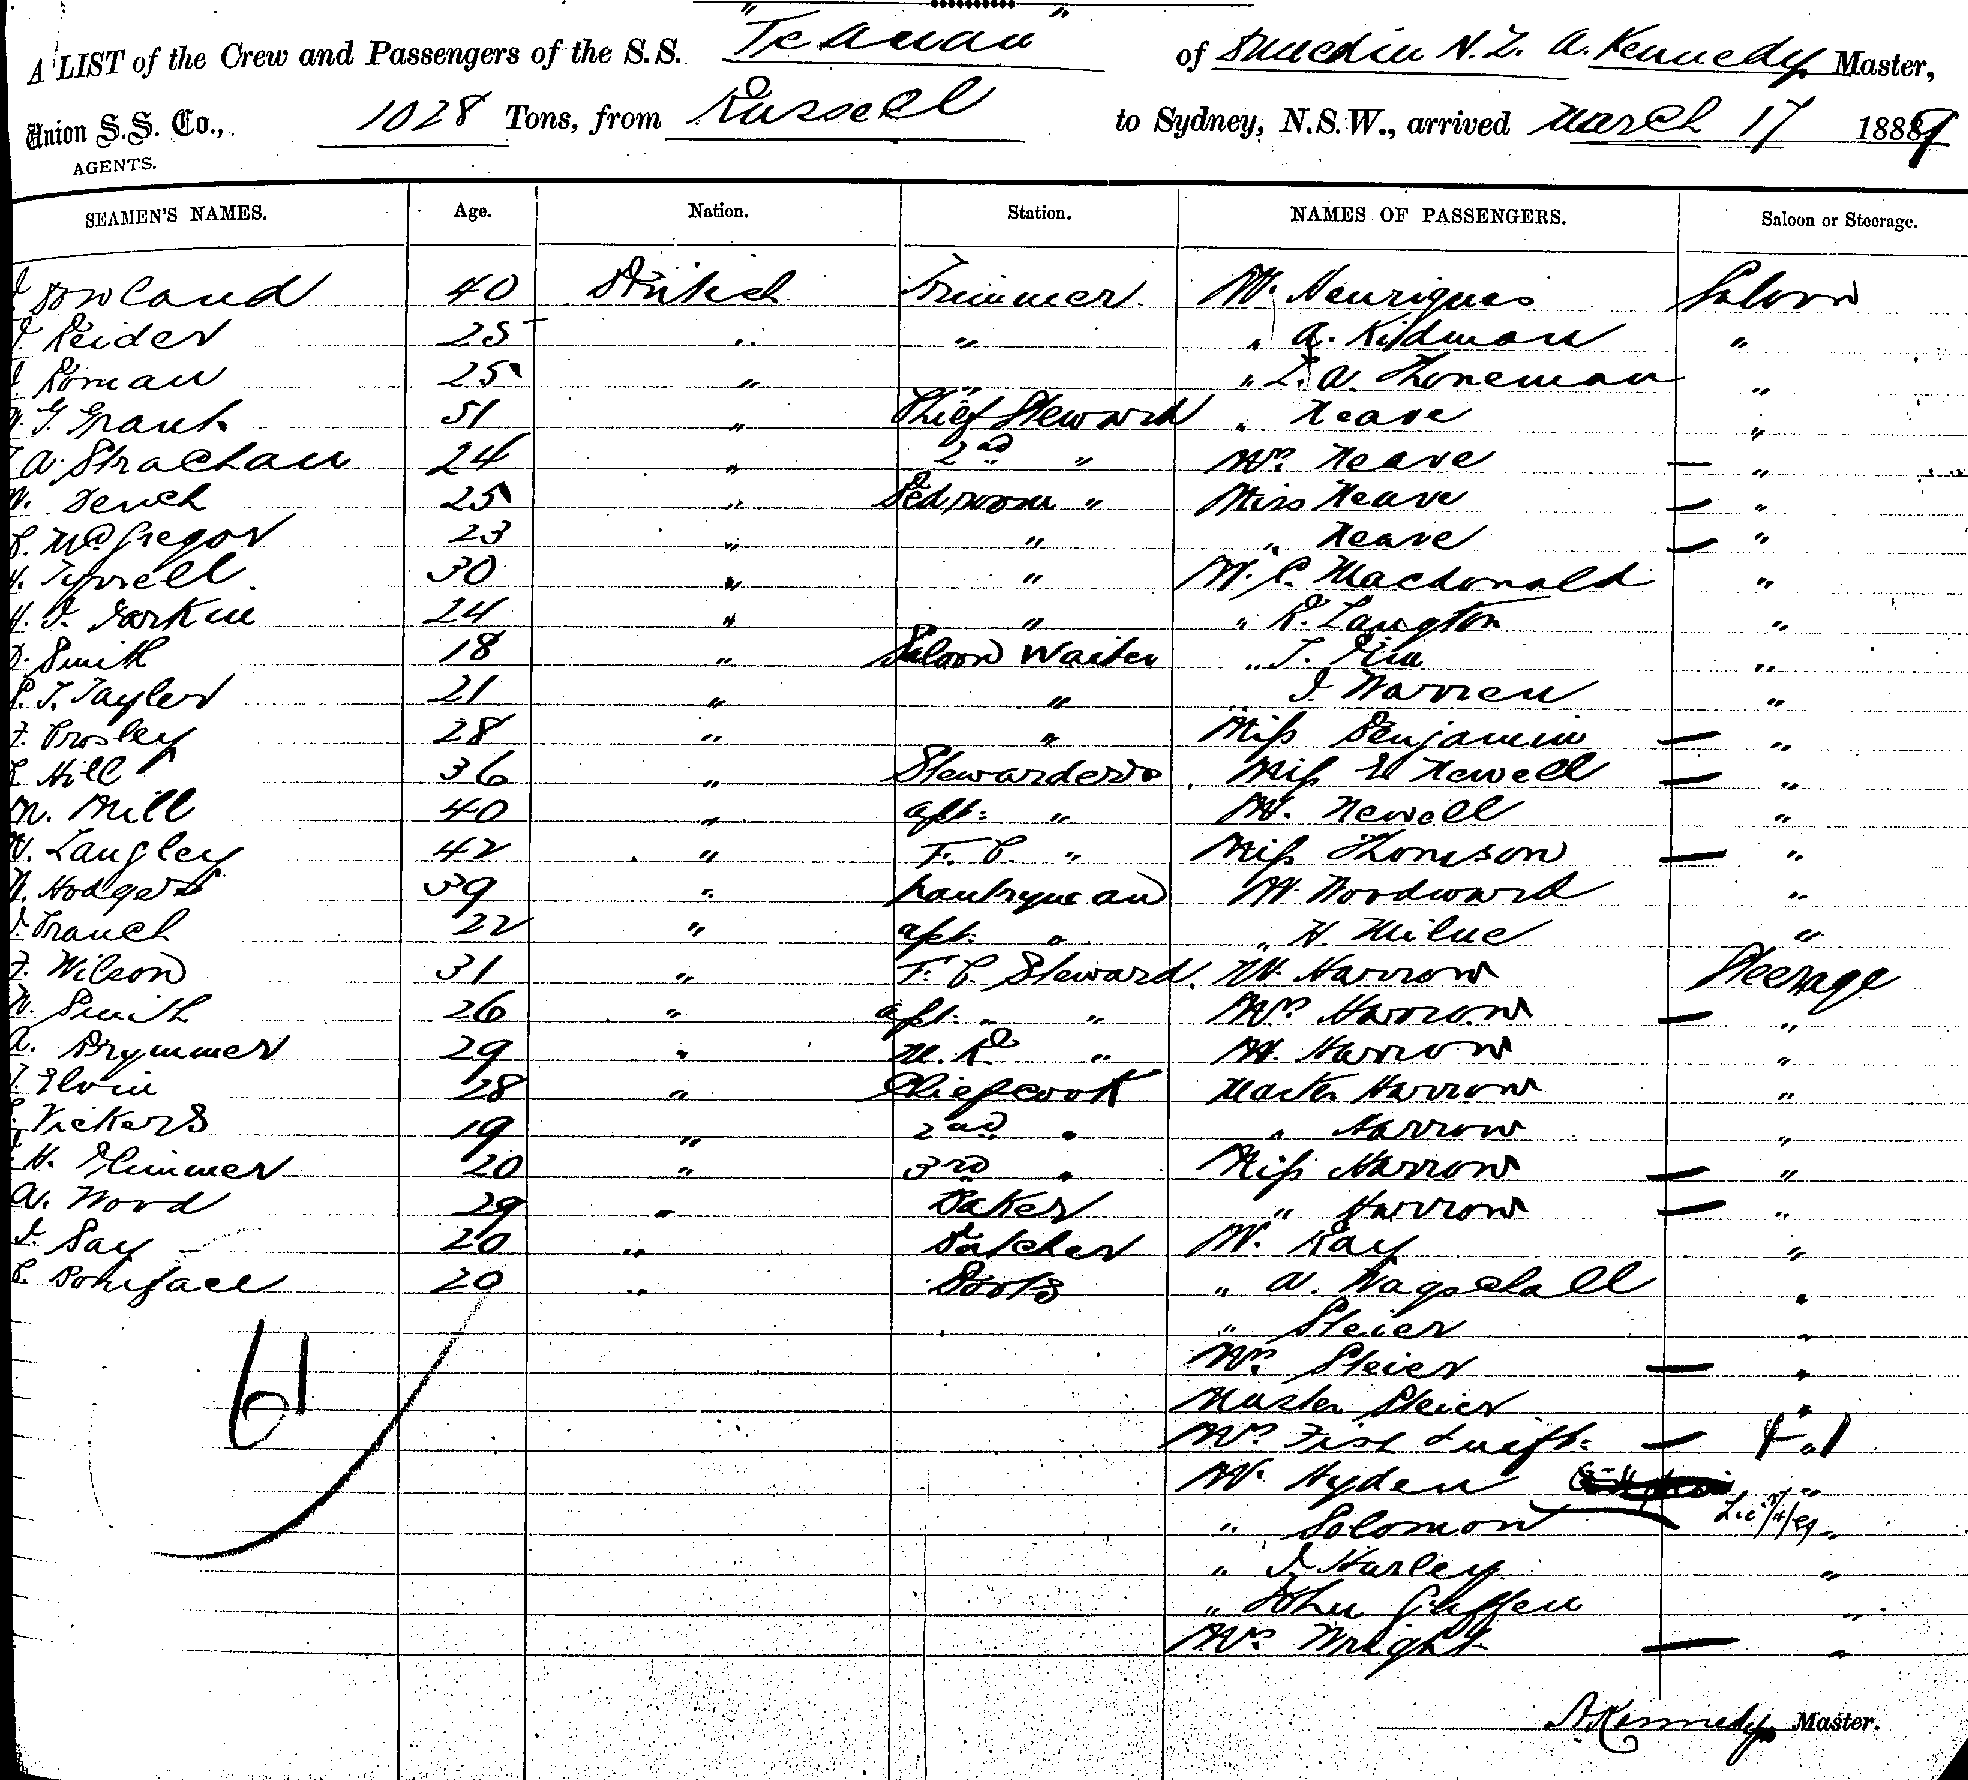 " Te Anau "
A LIST of the Crew and Passengers of the S.S. of Dunedin N.Z. A. Kennedy Master,
Union S.S. Co., 1028 Tons, from Russell to Sydney, N.S.W., arrived March 17 1889
AGENTS.
SEAMEN'S NAMES. Age. Nation. Station. NAMES OF PASSENGERS. Saloon or Steerage.
Rowland 40 British Trimmer Mr. Henriques Saloon
Reider 25 " " " A. Kidman "
Roman 25 " " " A. Thoneman "
G Grant 51 " Chief Steward " Neave "
A. Strachan 24 " 2nd " Mrs Neave — "
W. Dench 25 " Bedroom " Miss Neave — "
McGregor 23 " " " Neave — "
H. Tyrrell 30 " " Mr. C. Macdonald "
H. J. Larkin 24 " " " R. Langton "
Smith 18 " Saloon Waiter " T. Pim "
T. Tayler 21 " " J Warren "
F. Crosley 28 " " Miss Benjamin — "
Hill 36 " Stewardess Miss E Newell — "
M. Mill 40 " aft: " Mr. Newell "
W. Langley 42 " F. C. " Miss Thomson — "
Hodges 39 " pantryman Mr Woodward "
Franch 22 " aft: " " H. Milne "
F. Wilson 31 " F. C Steward. Mr. Harrow Steerage
W. Smith 26 " aft: " " Mrs Harrow — "
A. Brymmer 29 " " Mr. Harrow "
Elvin 28 " Chief cook Master Harrow "
Vickers 19 " 2nd " " Harrow "
H. Plimmer 20 " 3rd " Miss Harrow — "
A. Wood 29 " Baker " Harrow — "
J. Say 20 " Butcher Mr. Ray "
C. Boniface 20 " Boots " A. Wagstall "
" Steier "
Mrs Steier — "
Master Steier "
61 Mrs — "
Mr. Hyden "
" Solomon "
" J Harley "
" John Giffen "
Mrs Wright — "
A Kennedy Master.